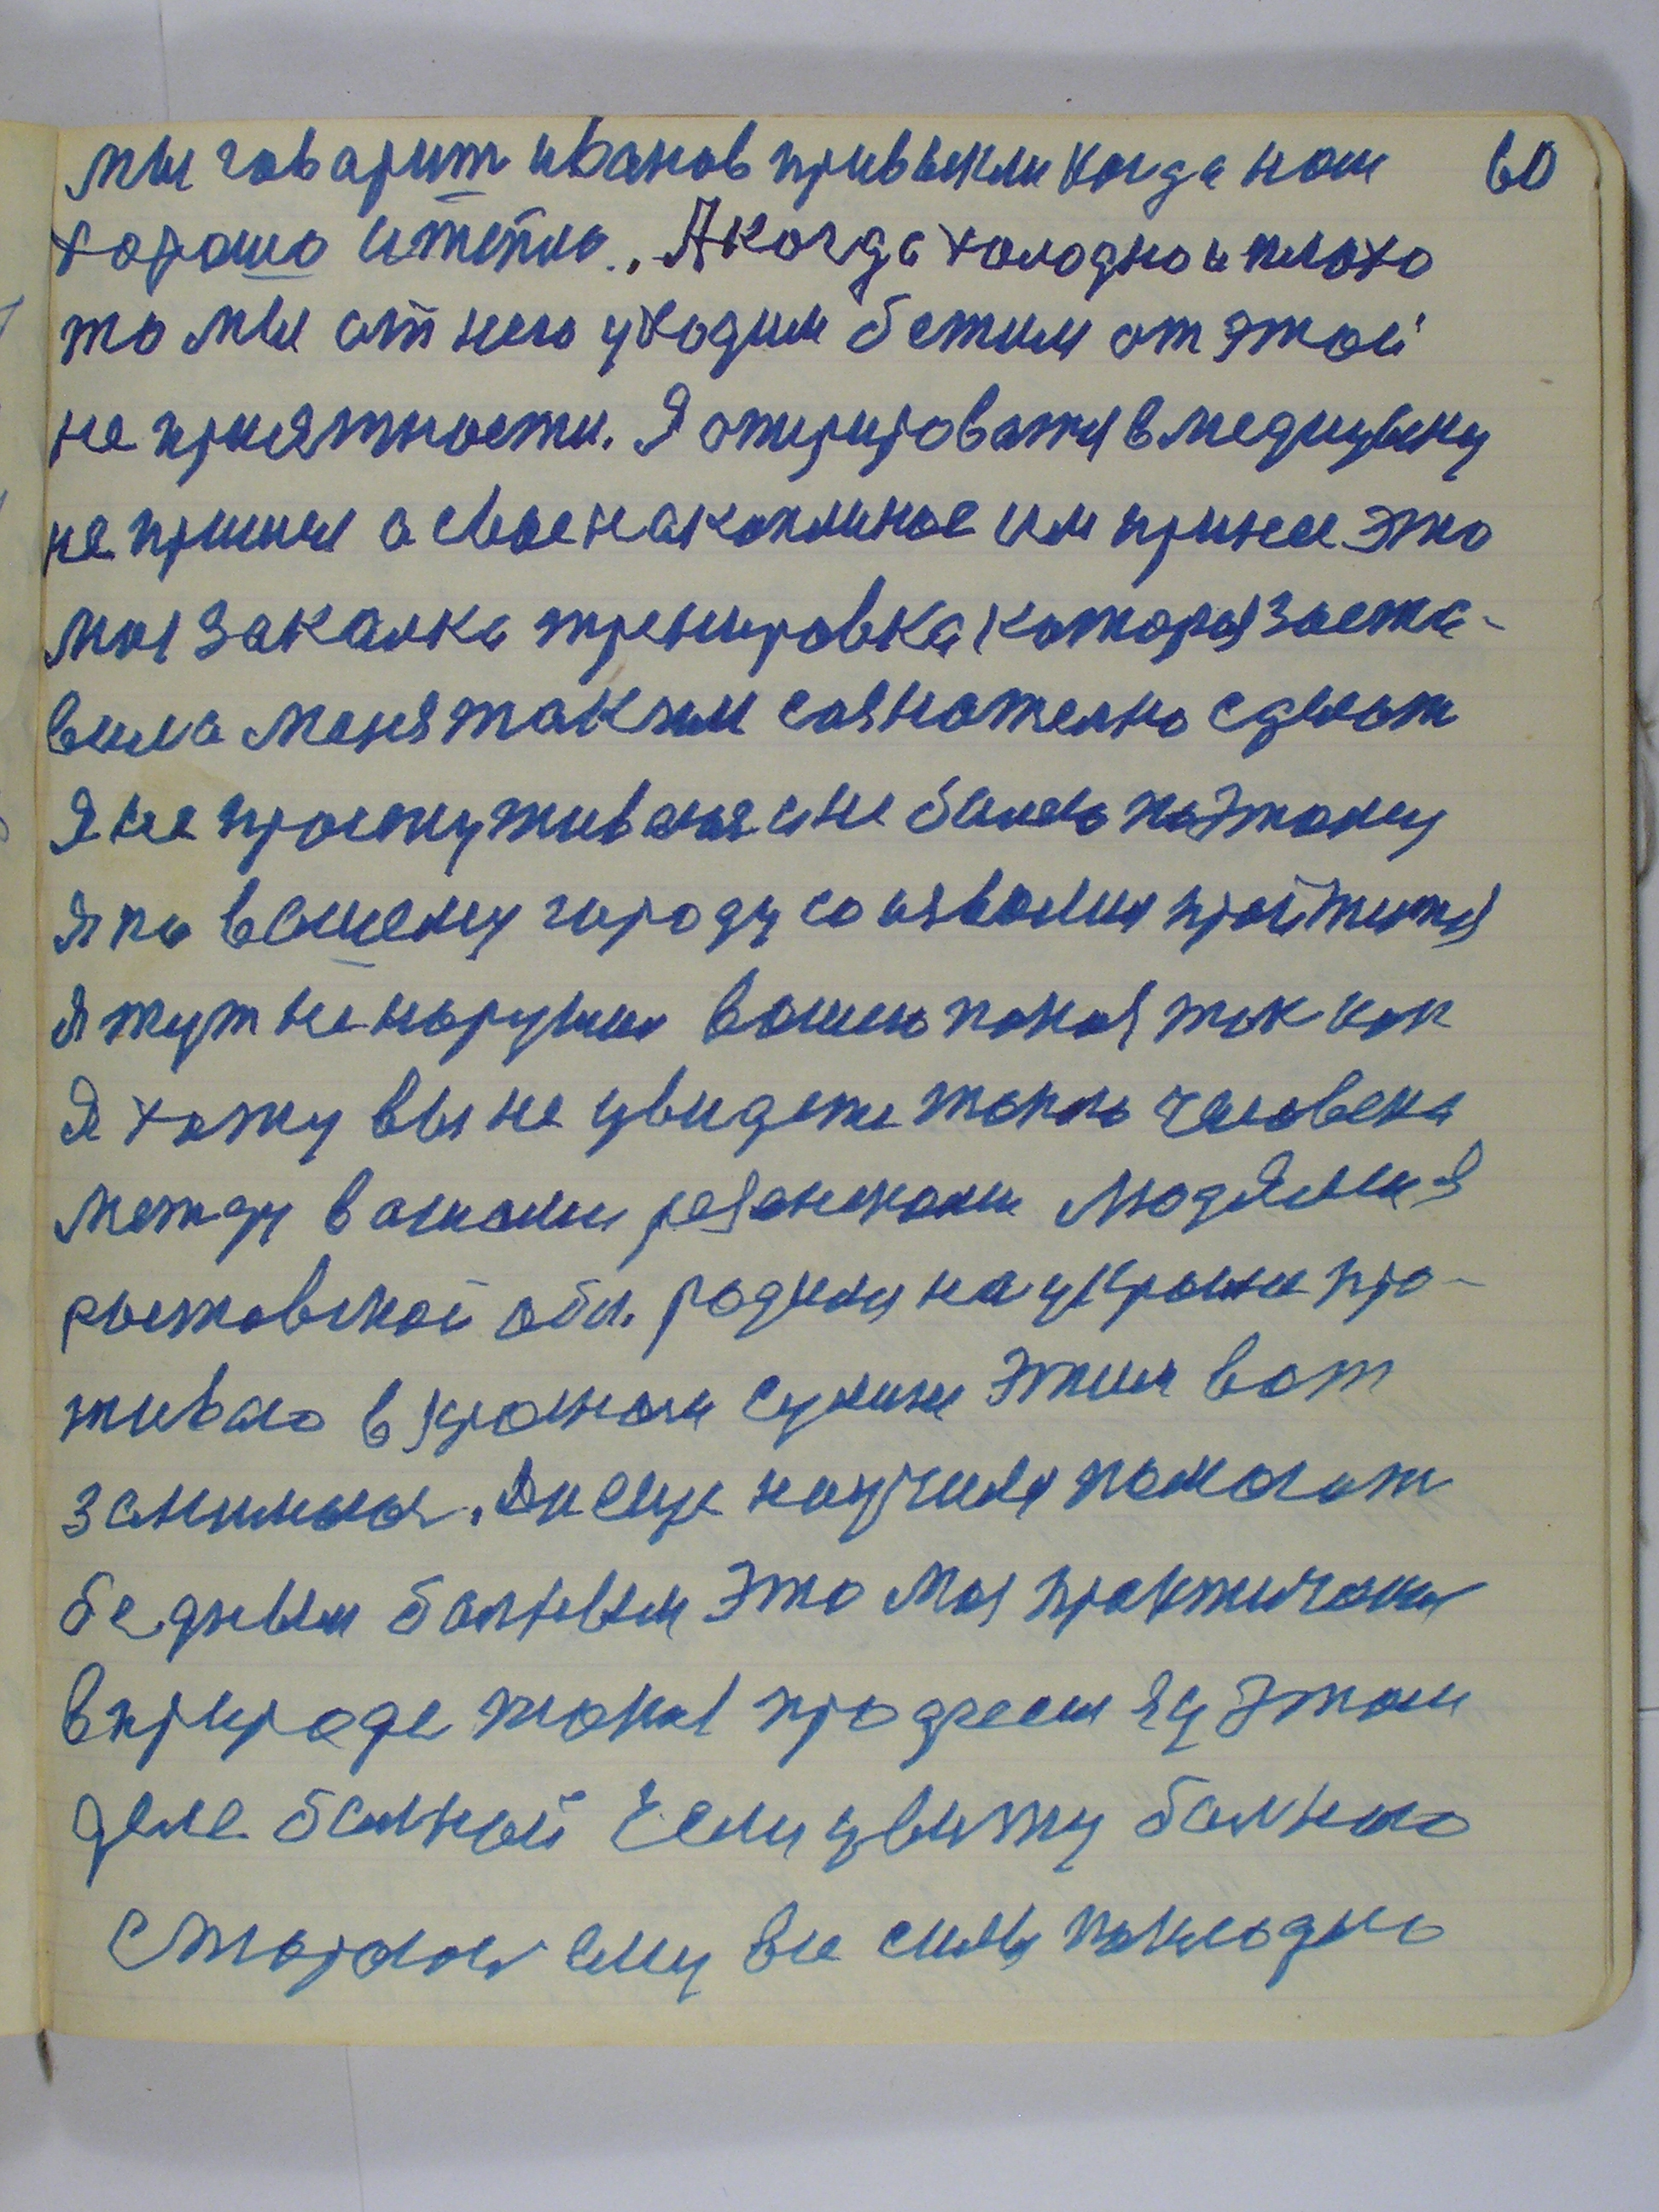 мы говарит иванов привыкли когда нам 60
хорошо и тепло. А когда холодно и плохо
то мы от него уходим бежим от этой
не приятности. Я оперироватя в медицину
не пришел а свое накопленое им принес это
моя закалка тренировка которая заста-
вила меня таким сознателно сделат
Я не простуживаюя и не балею поэтому
я по вашему городу соизволил пройтитя
я тут не нарушил вашего покоя так как
Я хожу вы не увидети такого человека
между вашими людями я
ростовской обл. родился на украини про-
живаю в красном сулини этим вот
занимаюя. Я исче научился помогат
бедным балным это моя практичаски
в природе такая я у этом
деле балной Если увижу балного
стараюя ему все силы